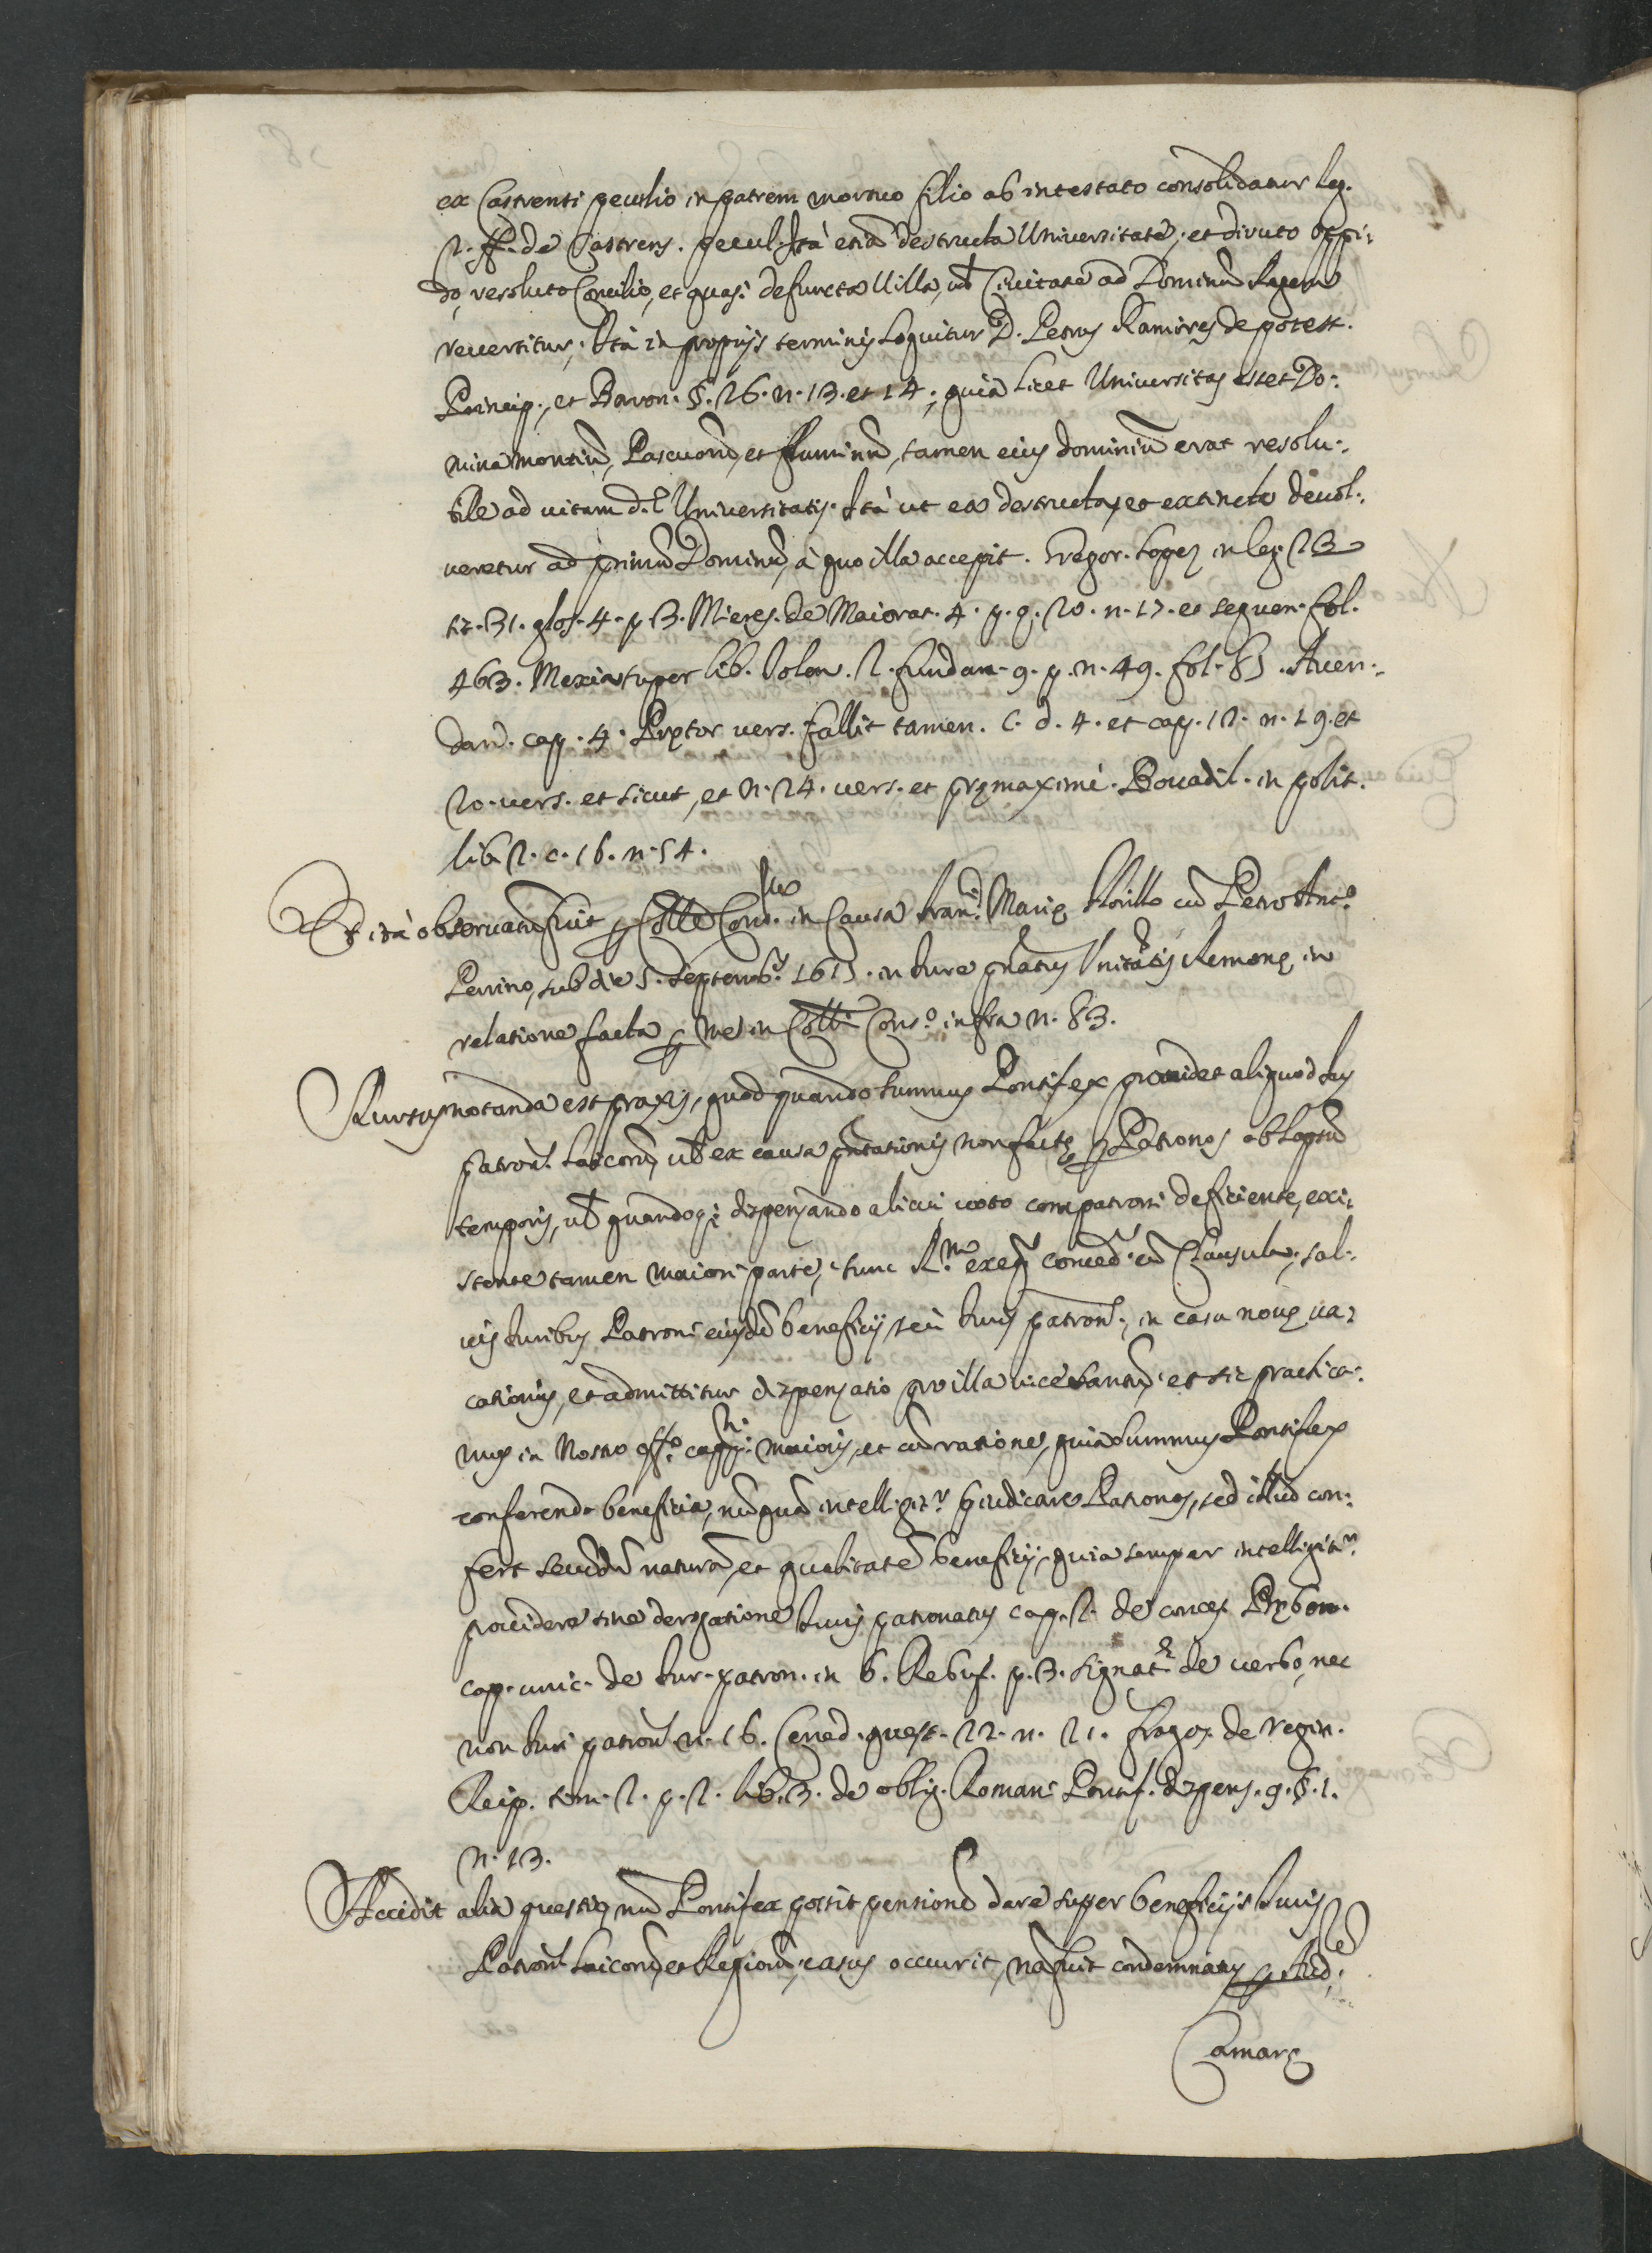 ex Castrensi peculio in patrem mortuo filio ab intestato consolidatur leg.
2. ff. de Castrens. pecul. Ità etiã destructa Universitate, et diruto oppi-
do, resoluto Concilio, et quasi defuncta Villa, vel Civitate ad Dominũ Regem
revertitur, Ità in proprijs terminis loquitur D. Petrus Ramires de potest.
Princip., et Baron. §. 26. n. 13. et 14; quia licet Universitas esset Do-
mina montiũ, Pascuorũ, et fluminũ, tamen eius dominiũ erat resolu-
bile ad vitam d.ᵉ Universitatis. Ità ut ea destructa, et extincta devol-
veretur ad primũ Dominũ, à quo illa accepit. Gregor. Lopez in leg. 23
tt. 31. glos. 4. p. 3. Mieres. de Maiorat. 4. p. q. 20. n. 17. et sequen. fol.
463. Mexia super lib. Tolen. 2. fundam. 9. p. n. 49. fol. 85. Aven-
dan. cap. 4. Prętor vers. fallit tamen. C. d. 4. et cap. 12. n. 19. et
20. vers. et sicut, et n. 24. vers. et pręmaximè. Bovadil. in polit.
lib. 2. c. 16. n. 54.
Et ità observatũ fuit ꝑ Colle Cons. in Causa Marię Florillo cũ Petro Ant.º
Perrino, sub die 5. Septemb. 1615. in Iure Remonę, in
relatione facta ꝑ me in Coll. Cons.º infra n. 83.
Rursus notanda est praxis, quod quando Summus Pontifex providet aliquod Ius
patron. laicorũ, vel ex causa pñtationis non factę ꝑ Patronos ob lapsũ
temporis, vel quandoq; dispensando alicui voto compatroni deficiente, exi-
stente tamen maiori parte, tunc R.ᵐ exeq. conced. cũ Clausula, sal-
vis Iuribus Patroni eiusdẽ beneficij, seù Iuris patron., in casu novę va-
cationis, et admittitur dispensatio pro illa vice tantũ, et sic practica-
mus in Nostro off.º capp.ⁿⁱ maioris, et cũ ratione, quia Summus Pontifex
conferendo beneficia, nũquã intelligit.ʳ pręiudicare Patronos, sed illud con-
fert secundũ naturã, et qualitatẽ beneficij, quia semper intelligit.ʳ
providere sine derogatione Iuris patronatus cap. 2. de conces. Pręben.
cap. unic. de Iur. patron. in 6. Rebuf. p. 3. signat. de verbo, nec
non Iuri patron. n. 16. Cened. quest. 22. n. 21. fragos. de regim.
Reip. tom. 2. p. 2. lib. 3. de oblig. Romani Pontif. dispens. 9. §. 1.
n. 13.
Accidit alia questio, nũ Pontifex possit pensionẽ dare super beneficijs Iuris
Patron. laicorũ, et Regiorũ, casus occurrit, nã fuit condemnatus ꝑ Aud.
Camarę